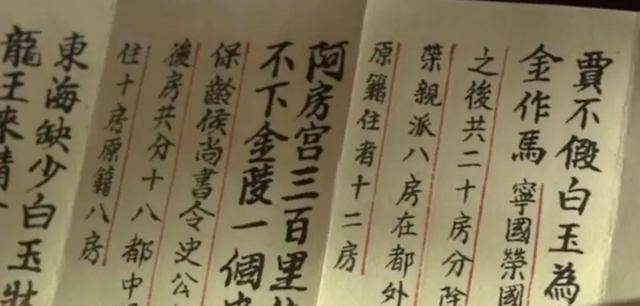 賈不假白玉為
金作馬 寧國榮國
之後共二十房分除
榮親派八房在都外
原籍住者十二房
阿房宫三百里住
不下金陵一個史
保齡侯尚書令史公
後房共分十八都中
住十房原籍八房
東海缺少白玉牀
龍王來請